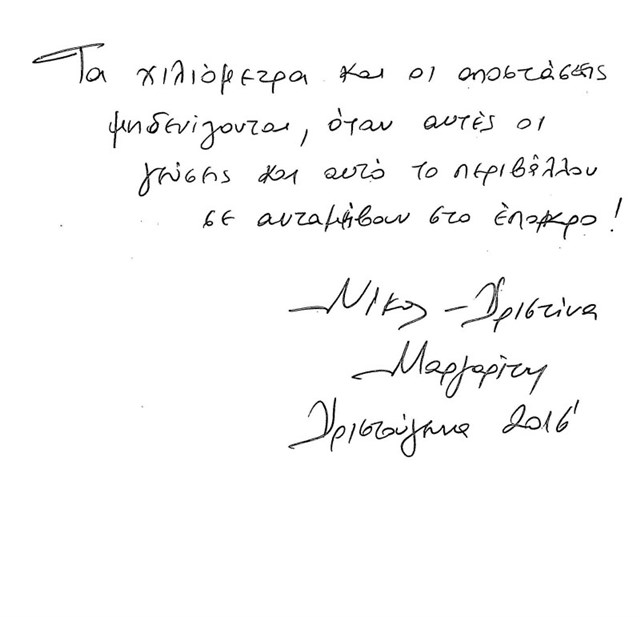 Τα χιλιόμετρα και οι αποστάσεις
μηδενίζονται, όταν αυτές οι
γεύσεις και αυτό το περιβάλλον
σε ανταμείβουν στο έπακρο!
Νίκος - Χριστίνα
Μαργαρίτη
Χριστούγεννα 2016